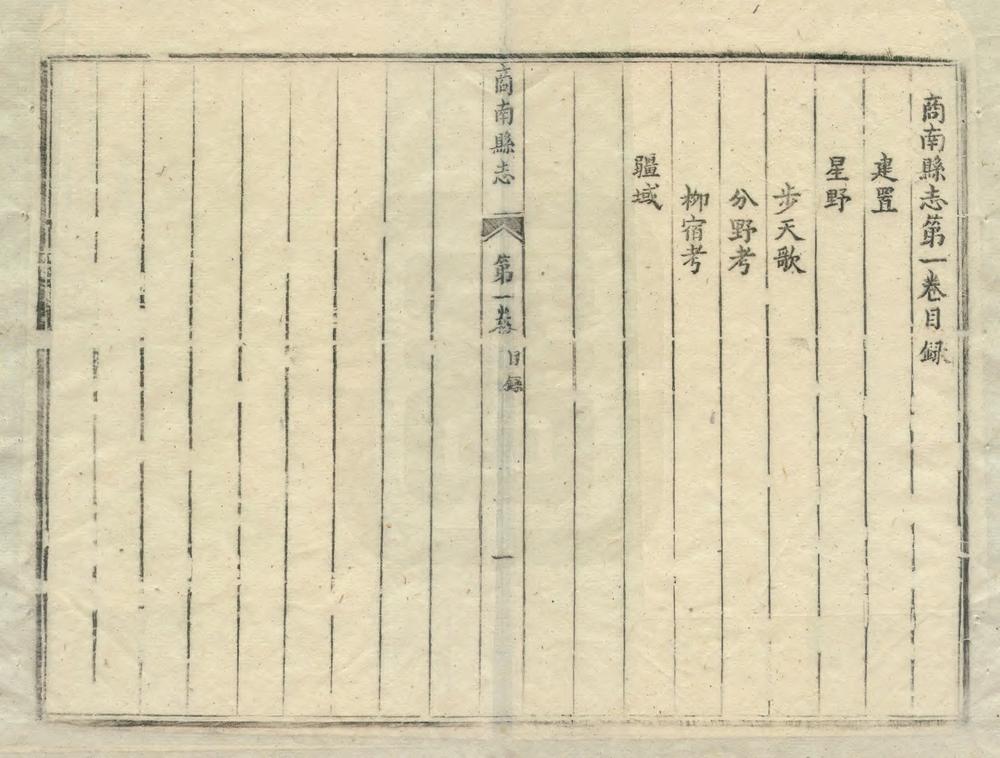 商南縣志第一卷目録
建置
星野
步天歌
分野考
柳宿考
疆域
商南縣志
第一卷
目録
一